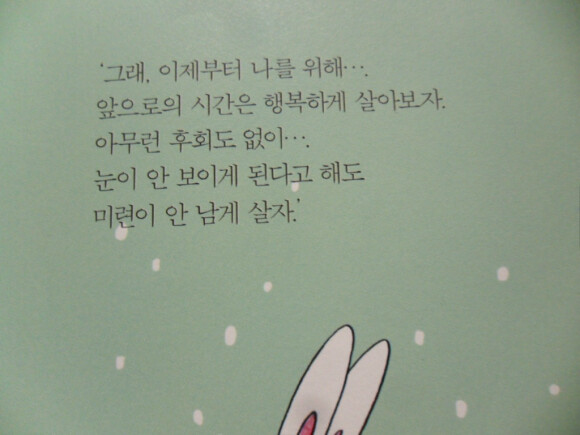 ‘그래, 이제부터 나를 위해….
앞으로의 시간은 행복하게 살아보자.
아무런 후회도 없이….
눈이 안 보이게 된다고 해도
미련이 안 남게 살자.’